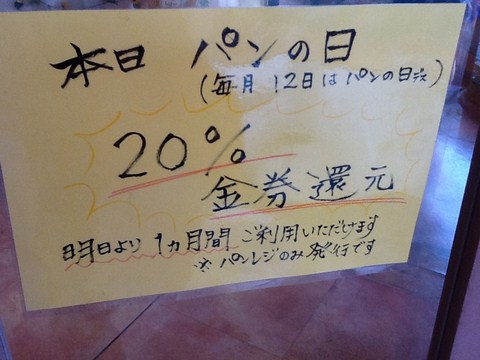 本日 パンの日
(毎月12日はパンの日です)
20%
金券還元
明日より1ヵ月間ご利用いただけます
※パンレジのみ発行です